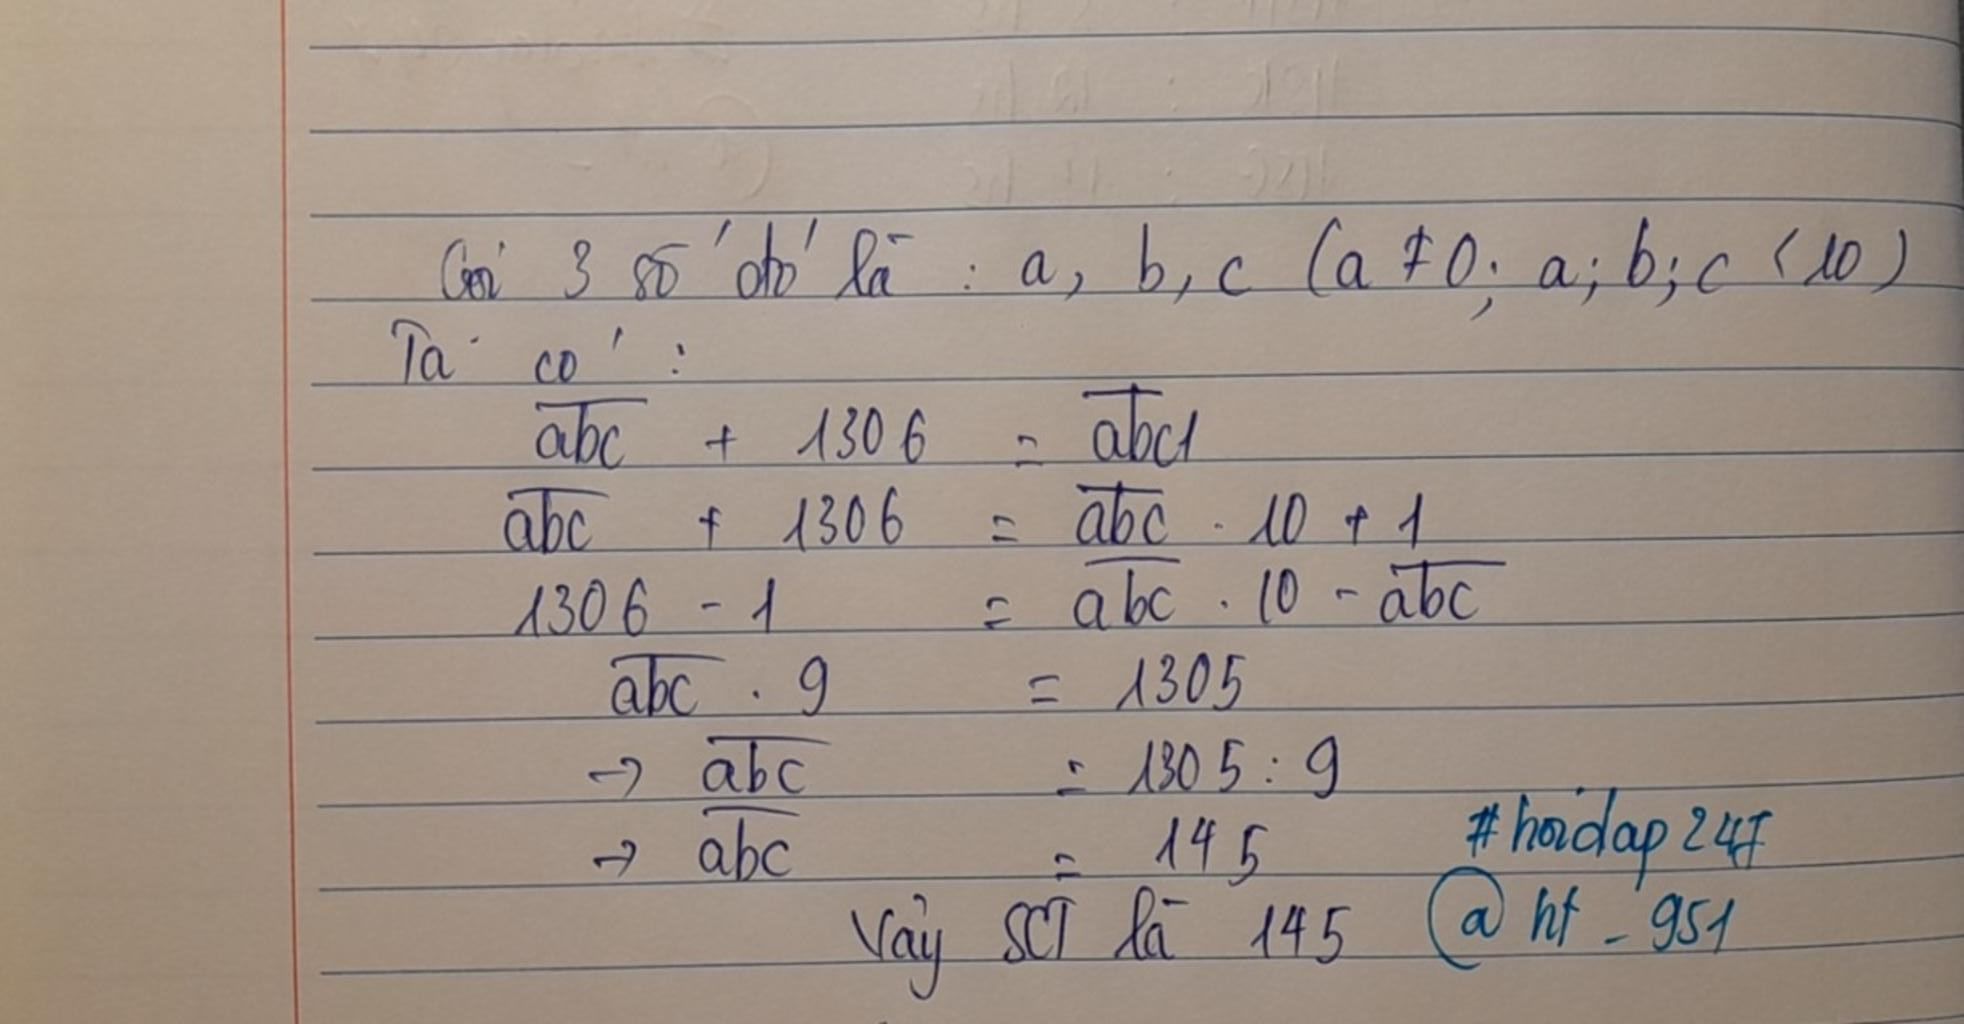 Gọi 3 số đó là : a, b, c (a ≠ 0; a; b; c < 10)
Ta có :
a͞b͞c͞ + 1306 = a͞b͞c͞1͞
a͞b͞c͞ + 1306 = a͞b͞c͞ . 10 + 1
1306 - 1 = a͞b͞c͞ . 10 - a͞b͞c͞
a͞b͞c͞ . 9 = 1305
→ a͞b͞c͞ = 1305 : 9
→ a͞b͞c͞ = 145
#hoidap247
Vậy SCT là 145
@ht_951